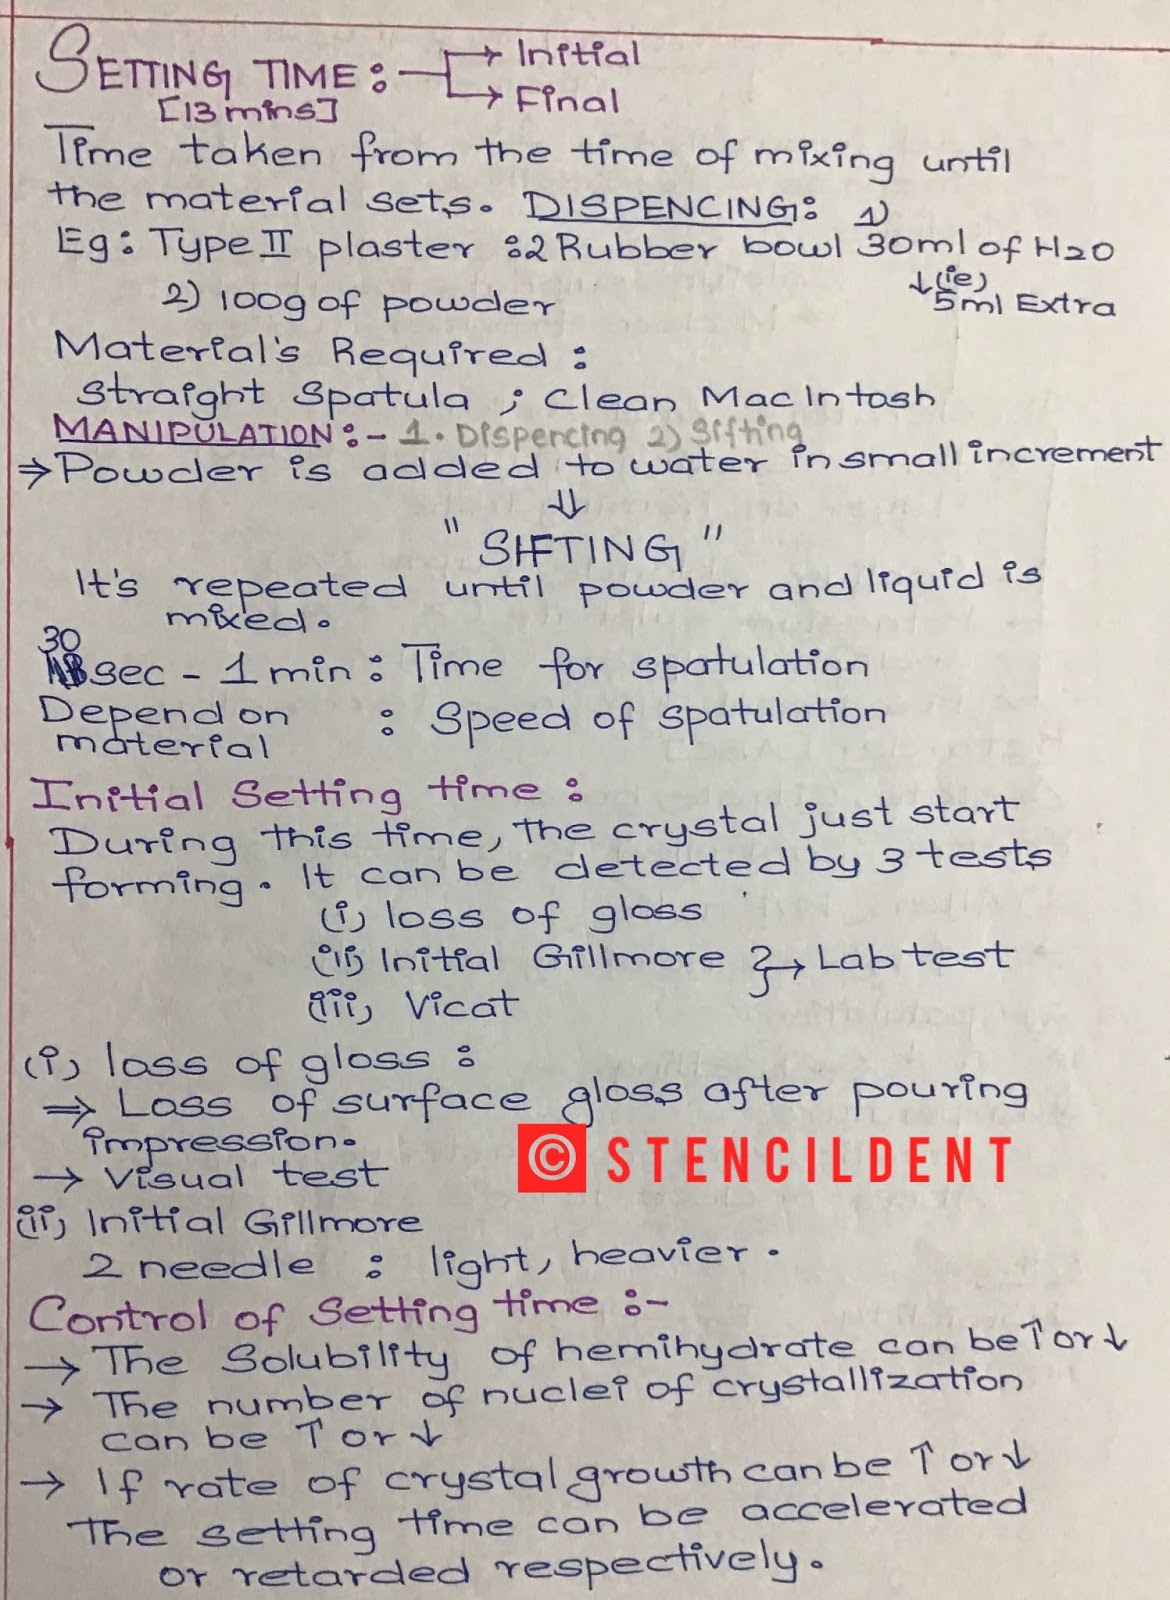 SETTING TIME :- → Initial
→ Final
[13 mins]
Time taken from the time of mixing until
the material sets. DISPENCING: 1)
Eg: Type II plaster :2 Rubber bowl 30ml of H2O
↓(ie)
2) 100g of powder 5ml Extra
Material's Required :
Straight Spatula ; Clean MacIntosh
MANIPULATION :- 1. Dispencing 2) Sifting
⇒ Powder is added to water in small increment
⇓
" SIFTING "
It's repeated until powder and liquid is
mixed.
30
sec - 1 min : Time for spatulation
Depend on : Speed of spatulation
material
Initial Setting time :
During this time, the crystal just start
forming. It can be detected by 3 tests
(i) loss of gloss
(ii) Initial Gillmore } → Lab test
(iii) Vicat
(i) loss of gloss :
⇒ Loss of surface gloss after pouring
impression.
© STENCILDENT
→ Visual test
(ii) Initial Gillmore
2 needle : light, heavier.
Control of Setting time :-
→ The Solubility of hemihydrate can be ↑ or ↓
→ The number of nuclei of crystallization
can be ↑ or ↓
→ If rate of crystal growth can be ↑ or ↓
The setting time can be accelerated
or retarded respectively.